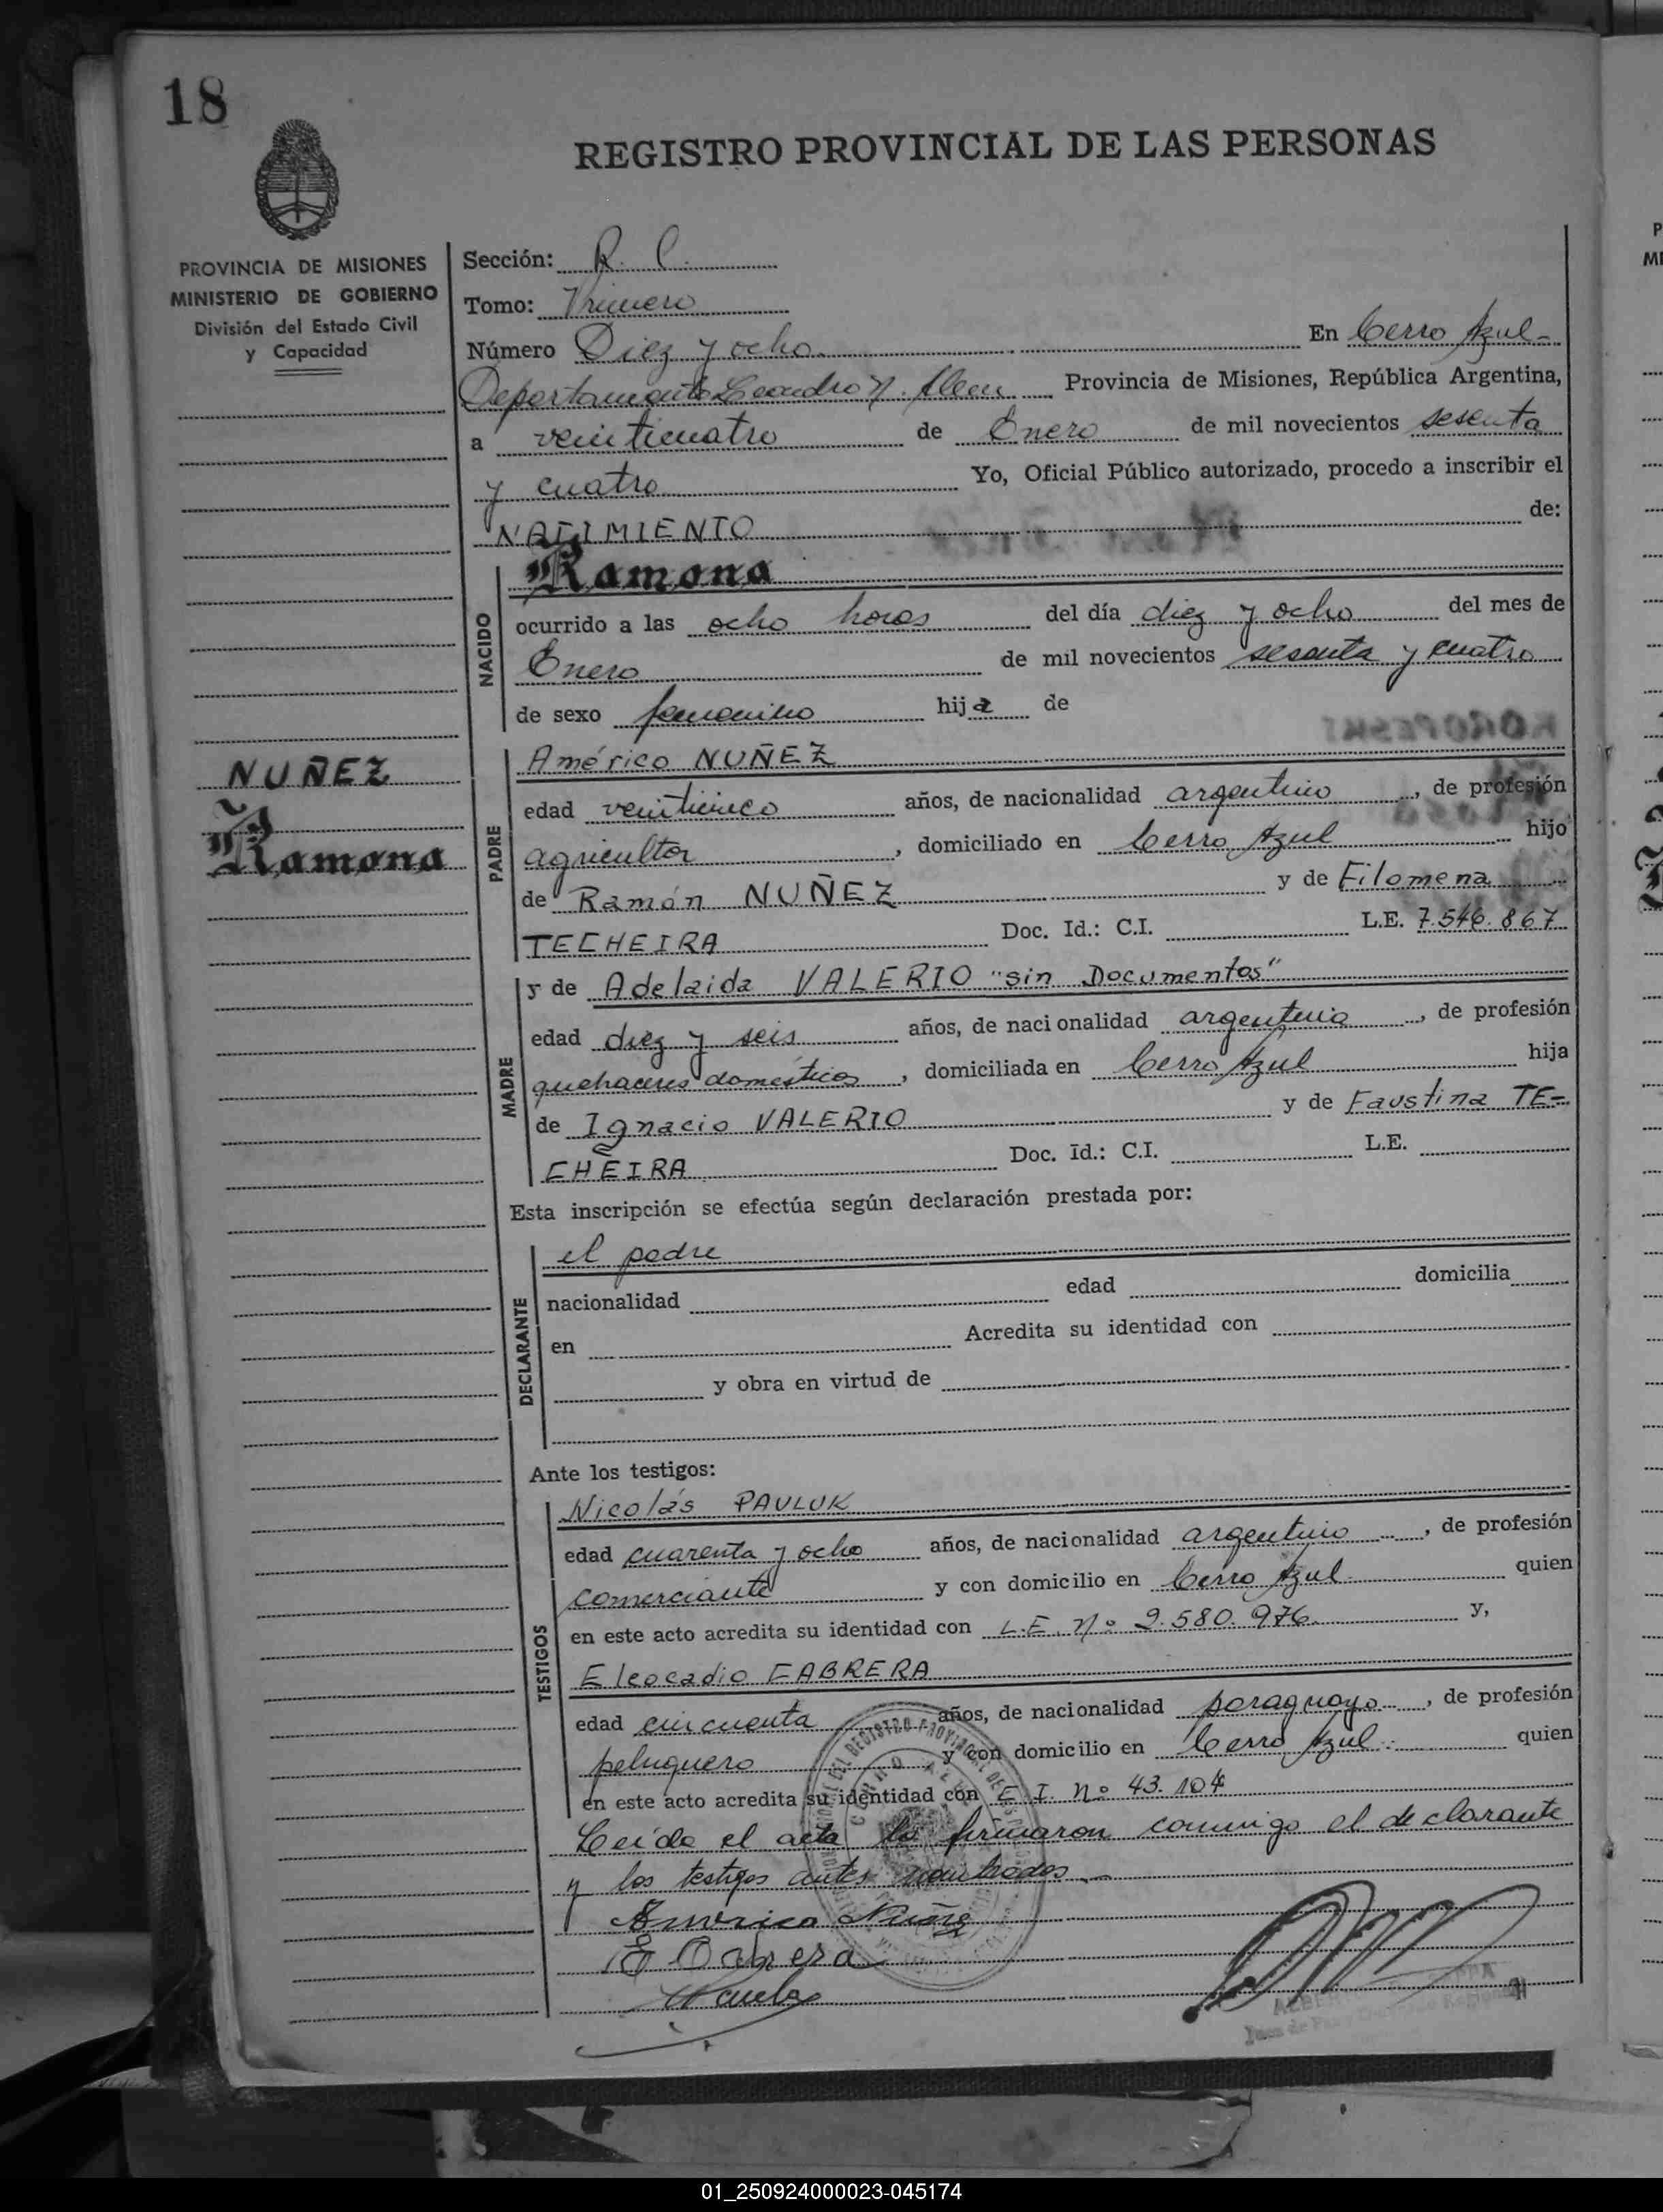 18
REGISTRO PROVINCIAL DE LAS PERSONAS
PROVINCIA DE MISIONES
MINISTERIO DE GOBIERNO
División del Estado Civil
y Capacidad
Sección: R. C.
Tomo: Primero
Número Diez y ocho En Cerro Azul-
Departamento Leandro N. Alem Provincia de Misiones, República Argentina,
a veinticuatro de Enero de mil novecientos sesenta
y cuatro Yo, Oficial Público autorizado, procedo a inscribir el
NACIMIENTO de:
NACIDO
Ramona
ocurrido a las ocho horas del día diez y ocho del mes de
Enero de mil novecientos sesenta y cuatro
de sexo femenino hija de
NUÑEZ
Ramona
PADRE
Américo NUÑEZ
edad veinticinco años, de nacionalidad argentino, de profesión
agricultor, domiciliado en Cerro Azul hijo
de Ramón NUÑEZ y de Filomena
TECHEIRA Doc. Id.: C.I. L.E. 7.546.867
MADRE
y de Adelaida VALERIO "sin Documentos"
edad diez y seis años, de nacionalidad argentina, de profesión
quehaceres domésticos, domiciliada en Cerro Azul hija
de Ignacio VALERIO y de Faustina TE-
CHEIRA Doc. Id.: C.I. L.E.
Esta inscripción se efectúa según declaración prestada por:
DECLARANTE
el padre
nacionalidad edad domicilia
en Acredita su identidad con
y obra en virtud de
Ante los testigos:
TESTIGOS
Nicolás PAULUK
edad cuarenta y ocho años, de nacionalidad argentino, de profesión
comerciante y con domicilio en Cerro Azul quien
en este acto acredita su identidad con L.E. Nº 2.580.976 y,
Eleocadio CABRERA
edad cincuenta años, de nacionalidad paraguayo, de profesión
peluquero y con domicilio en Cerro Azul quien
en este acto acredita su identidad con C.I. Nº 43.104
Leída el acta la firmaron conmigo el declarante
y los testigos antes nombrados.-
Americo Nuñez
E Cabrera
01_250924000023-045174